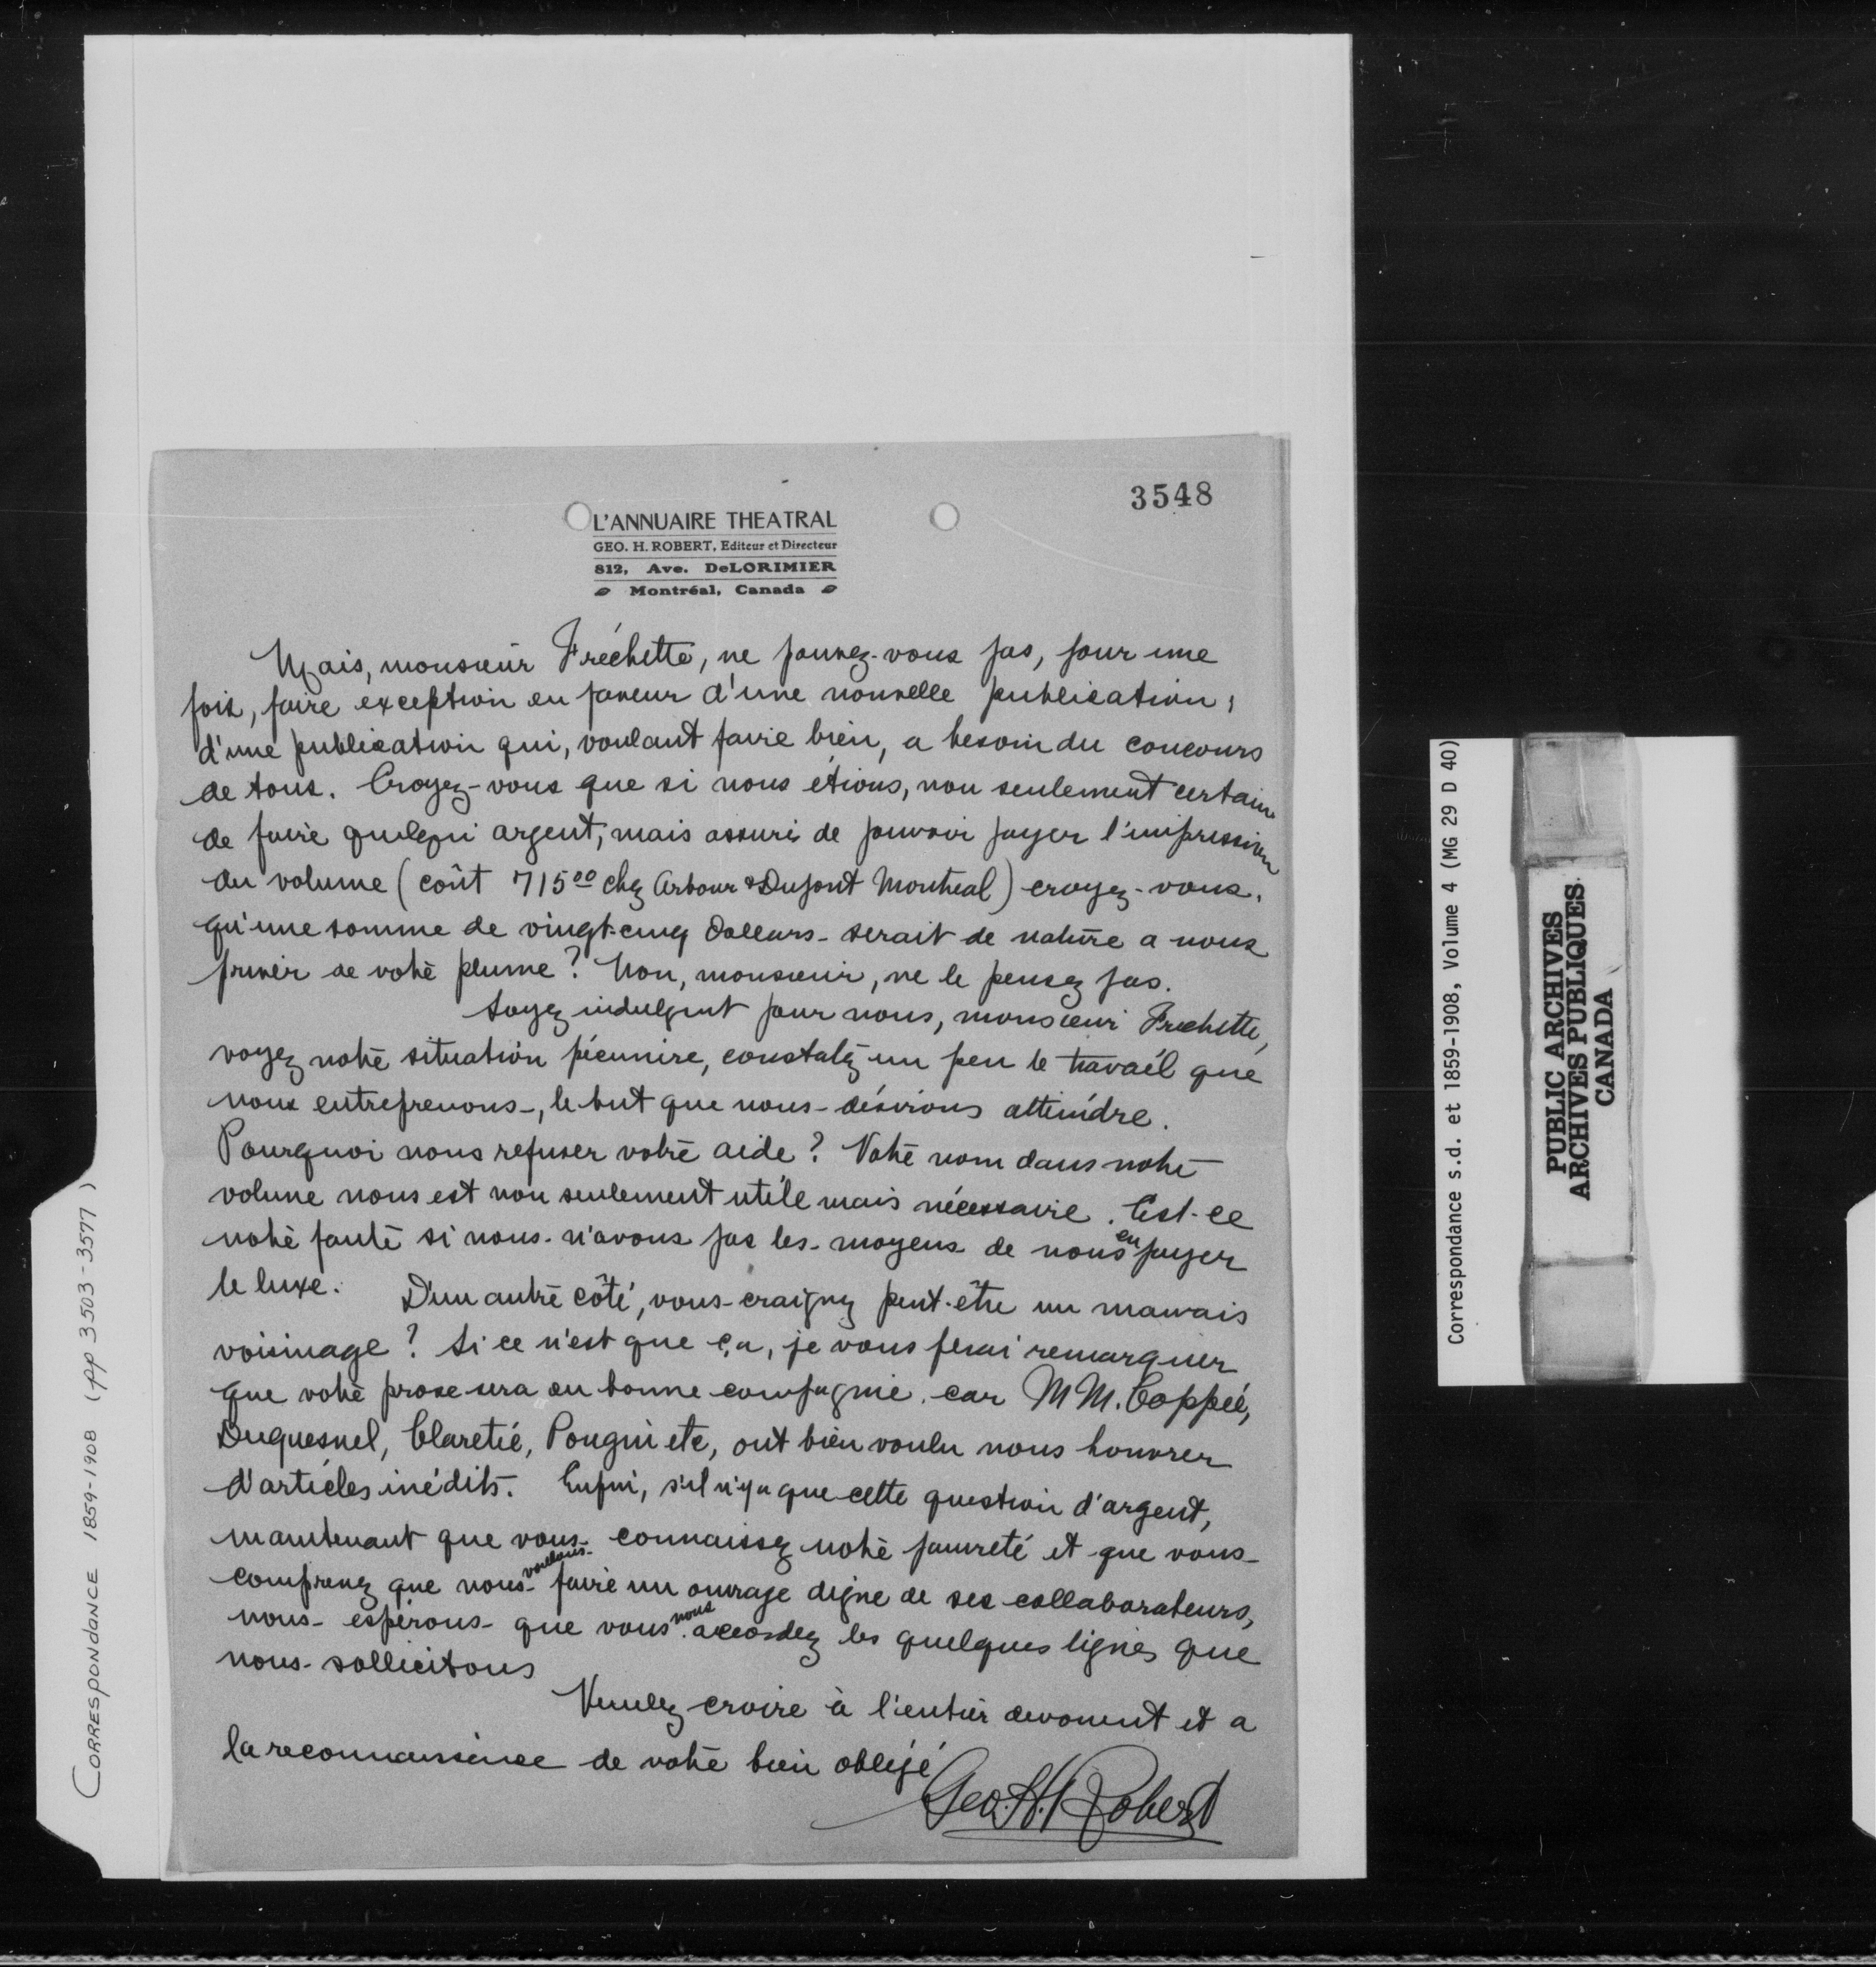 3548
L'ANNUAIRE THEATRAL
GEO. H. ROBERT, Editeur et Directeur
812, Ave. DeLORIMIER
Montréal, Canada
Mais, monsieur Fréchette, ne pouvez-vous pas, pour une
fois, faire exception en faveur d'une nouvelle publication,
d'une publication qui, voulant faire bien, a besoin du concours
de tous. Croyez-vous que si nous étions, non seulement certains
de faire quelqu argent, mais assuré de pouvoir payer l'impression
du volume (coût 715 00 chez Arbour & Dupont Montreal) croyez-vous,
qu'une somme de vingt-cinq dollars serait de nature a nous
priver de votre plume? Non, monsieur, ne le pensez pas.
Soyez indulgent pour nous, monsieur Frechette,
voyez notre situation pécunire, constatez un peu le travail que
nous entreprenons, le but que nous désirons atteindre.
Pourquoi nous refuser votre aide? Votre nom dans notre
volume nous est non seulement utile mais nécessaire. Est-ce
notre faute si nous n'avons pas les moyens de nous en payer
le luxe. D'un autre côté, vous craignez peut-être un mauvais
voisinage? Si ce n'est que ça, je vous ferai remarquer
que votre prose sera en bonne compagnie car MM. Coppée,
Duquesnel, Claretie, Pougin etc, ont bien voulu nous honorer
d'articles inédits. Enfin, s'il n'y a que cette question d'argent,
maintenant que vous connaissez notre pauvreté et que vous
comprenez que nous voulons faire un ouvrage digne de ses collaborateurs,
nous espérons que vous nous accordez les quelques lignes que
nous sollicitons
Veuillez croire à l'entier devouent et a
la reconnaissance de votre bien obligé
Geo. H. Robert
CORRESPONDANCE 1859-1908 (pp 3503-3577)
Correspondance s.d. et 1859-1908, Volume 4 (MG 29 D 40)
PUBLIC ARCHIVES
ARCHIVES PUBLIQUES
CANADA